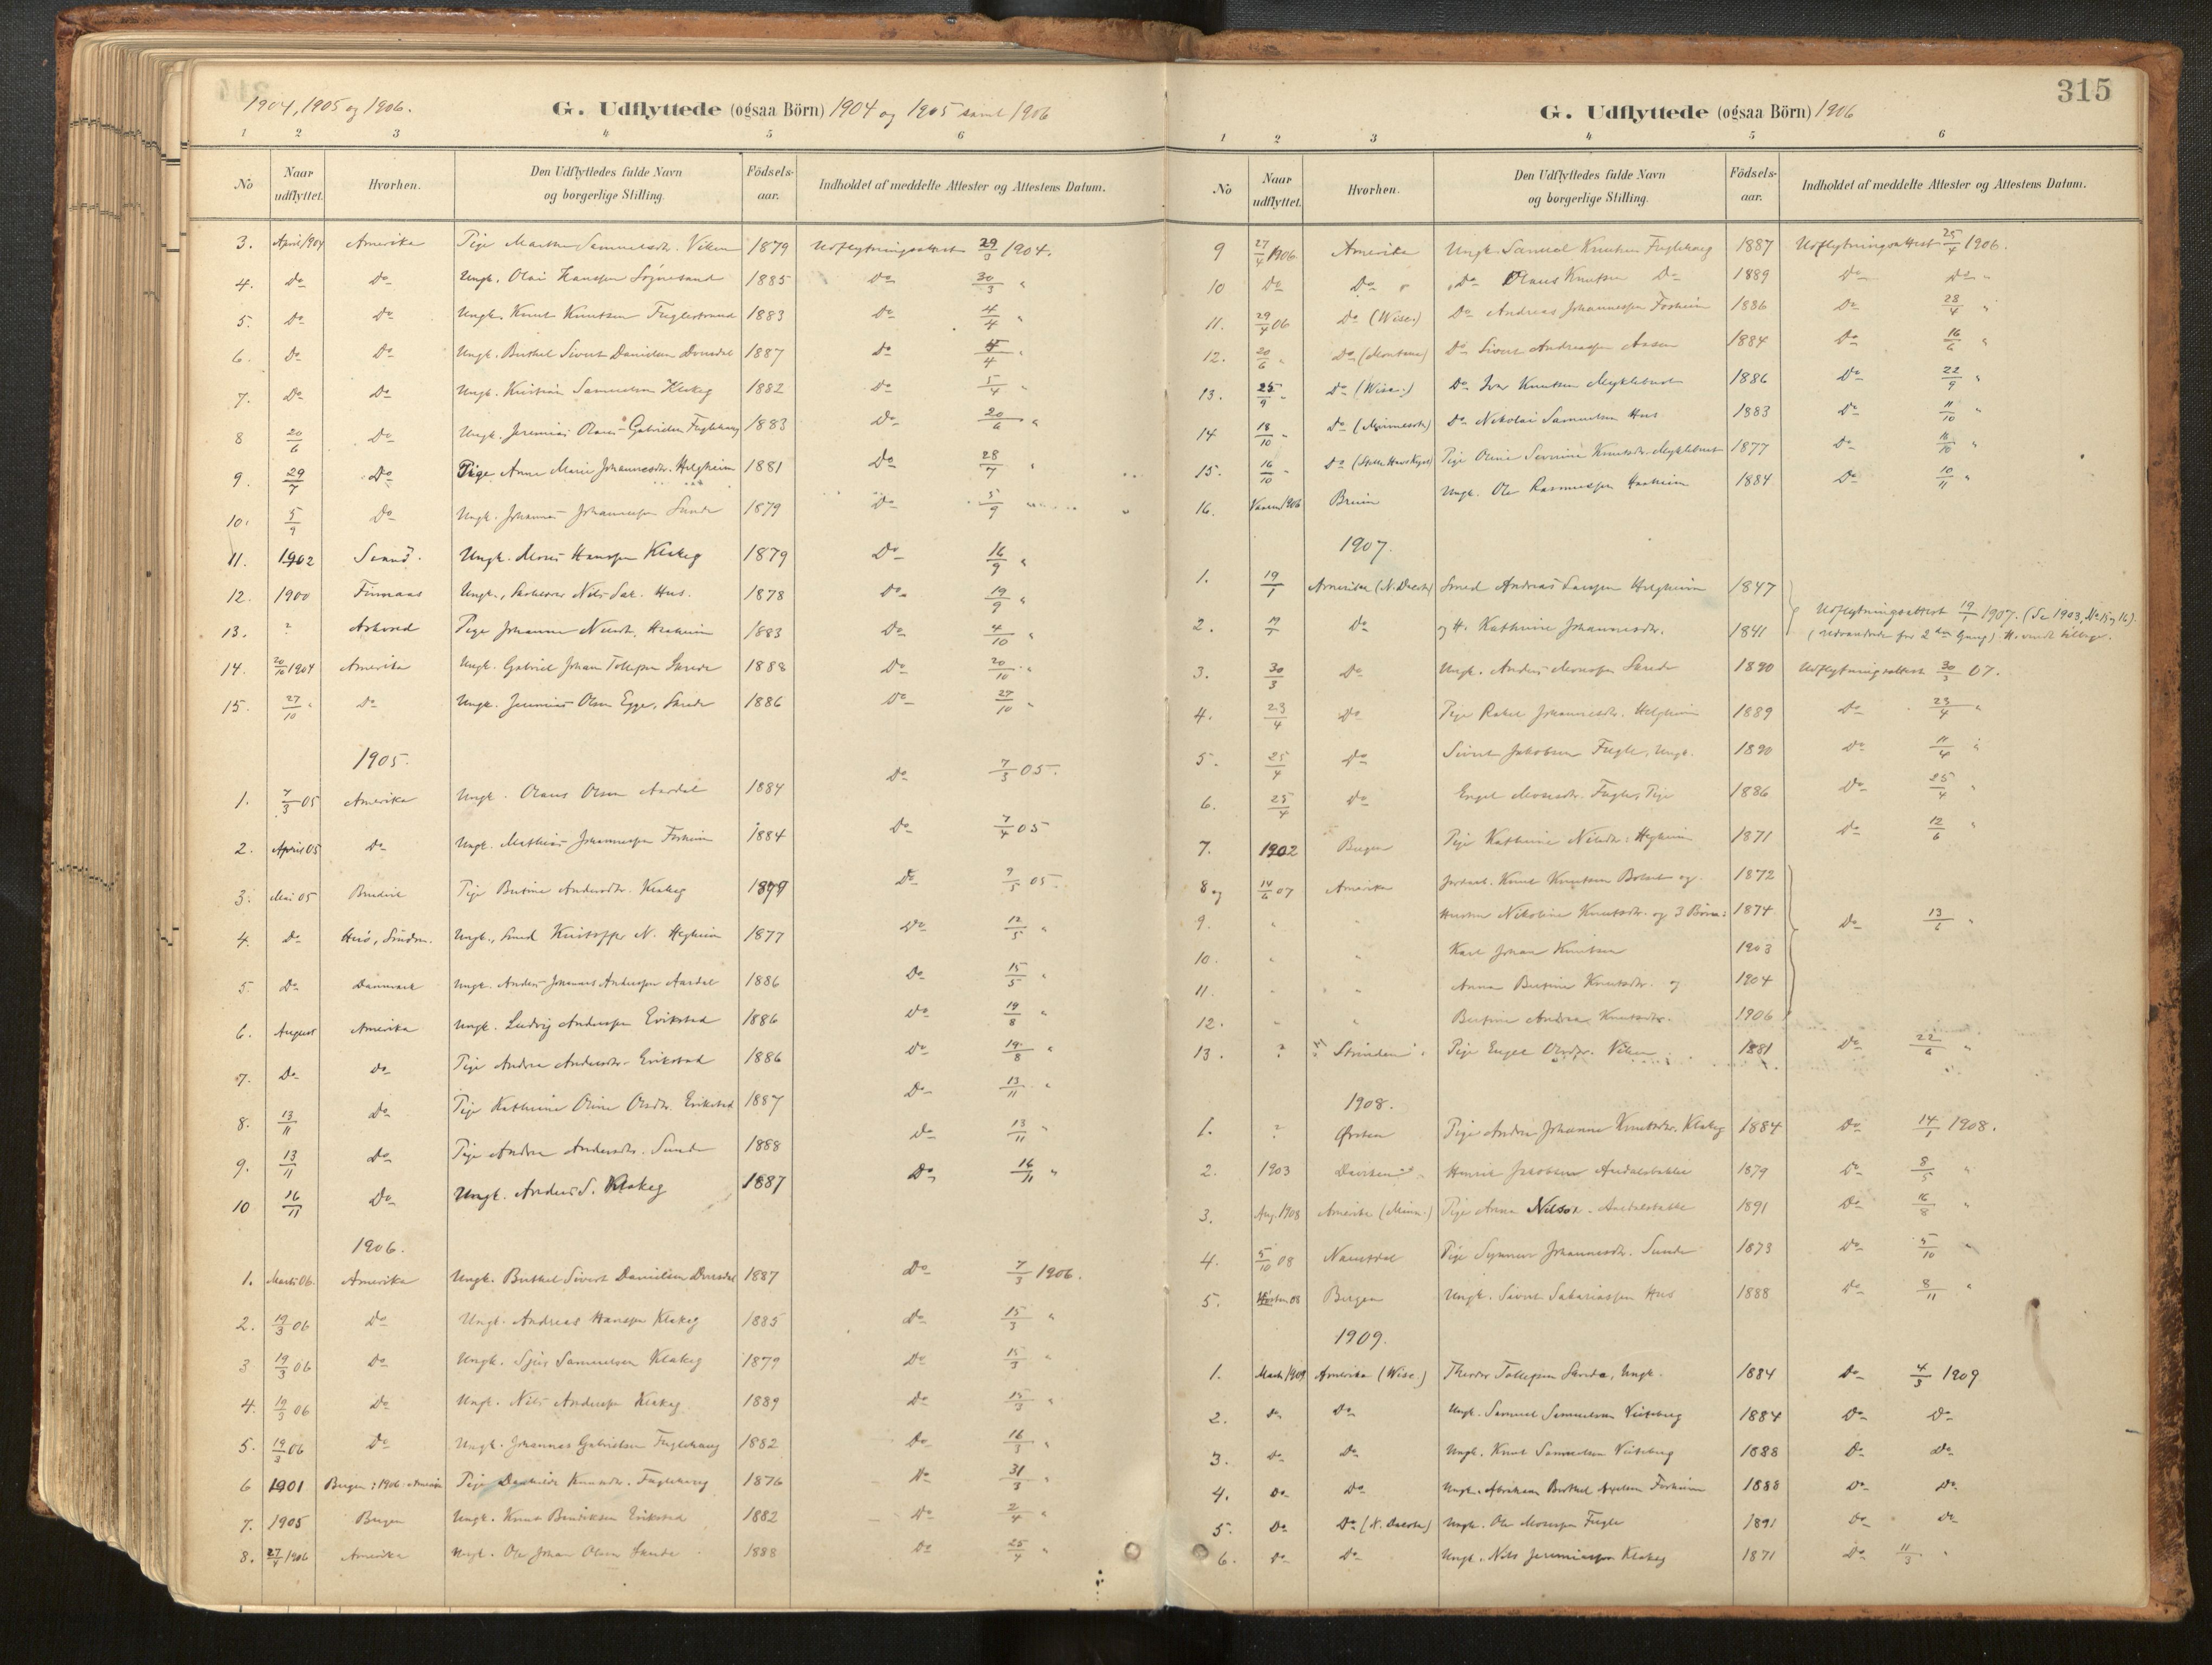 1904, 1905 og 1906.
G. Udflyttede (ogsaa Börn) 1904 og 1905 samt 1906
1 2 3 4 5 6
No Naar udflyttet. Hvorhen. Den Udflyttedes fulde Navn og borgerlige Stilling. Födsels-aar. Indholdet af meddelte Attester og Attestens Datum.
3. April/904 Amerika Pige Marthe Samuelsdtr. Viken 1879 Udflytningsattest 29/3 1904.
4. Do Do Ungk. Olai Hanssen Sognesand 1885 Do 30/3 "
5. Do Do Ungk. Knut Knutsen Fuglestrand 1883 Do 4/4 "
6. Do Do Ungk. Berthel Sivert Danielsen Dvergsdal 1887 Do 5/4 "
7. Do Do Ungk. Kristian Samuelsen Klakeg 1882 Do 5/4 "
8 20/6 Do Ungk. Jeremias Olaus Gabrielsen Fuglehaug 1883 Do 20/6 "
9. 29/7 Do Pige Anne Marie Johannesdtr. Helgheim 1881 Do 28/7 "
10. 5/9 Do Ungk. Johannes Johannessen Sunde 1879 Do 5/9 "
11. 1902 Ungk. Moses Hanssen Klakeg 1879 Do 16/9 "
12. 1900 Finnaas Ungk., Skolelærer Nils Sak. Hus. 1878 Do 19/9 "
13. ? Askvold Pige Johanne Haaheim 1883 Do 4/10 "
14. 20/10 1904 Amerika Ungk. Gabriel Johan Tollefsen Skrede 1888 Do 20/10 "
15. 27/10 " Do Ungk. Jeremias Olsen Egge, Skrede 1886 Do 27/10 "
1905.
1. 7/3 05 Amerika Ungk. Olaus Olsen Aardal 1884 Do 7/3 05.
2. April 05 Do Ungk. Mathias Johannessen Forheim 1884 Do 7/4 05
3. Mai 05 Bredvik Pige Bertine Andersdtr. Klakeg 1879 Do 9/5 05.
4. Do Ungk., Smed Kristoffer N. Hegheim 1877 Do 12/5 "
5. Do Danmark Ungk. Anders Johannes Anderssen Aardal 1886 Do 15/5 "
6. August Amerika Ungk. Ludvig Anderssen Erikstad 1886 Do 19/8 "
7. Do Do Pige Andrea Andersdtr. Eikstad 1886 Do 19/8 "
8. 13/11 Do Pige Kathrine Oline Olsdtr. Eikstad 1887 Do 13/11 "
9. 13/11 Do Pige Andrea Andersdtr. Sunde 1888 Do 13/11 "
10 16/11 Do Ungk. Anders S. Klakeg 1887 Do 16/11 "
1906.
1. Marts 06. Amerika Ungk. Berthel Sivert Danielsen Dvergsdal 1887 Do 7/3 1906.
2. 19/3 06 Do Ungk. Andreas Hanssen Klakeg 1885 Do 15/3 "
3 19/3 06 Do Ungk. Sjur Samuelsen Klakeg 1879 Do 15/3 "
4. 19/3 06 Do Ungk. Nils Anderssen Klakeg 1889 Do 15/3 "
5. 19/3 06 Do Ungk. Johannes Gabrielsen Fuglehaug 1882 Do 16/3 "
6 1901 Bergen: 1906: Amerika Pige Knutsdtr. Fuglehaug 1876 Do 31/3 "
7. 1905 Bergen Ungk. Knut Bendiksen Eikstad 1882 Do 2/4 "
8. 27/4 1906 Amerika Ungk. Ole Johan Olsen Skrede 1888 Do 25/4 "
315
G. Udflyttede (ogsaa Börn) 1906
1 2 3 4 5 6
No Naar udflyttet. Hvorhen. Den Udflyttedes fulde Navn og borgerlige Stilling. Födsels-aar. Indholdet af meddelte Attester og Attestens Datum.
9 27/4 1906 Amerika Ungk. Samuel Knutsen Fuglehaug 1887 Udflytningsattest 25/4 1906.
10 Do Do " Do Olaus Knutsen Do 1889 Do Do "
11. 29/4 06 Do (Wisc.) Do Andreas Johannessen Forheim 1886 Do 28/4 "
12. 20/6 " Do (Montana) Do Sivert Andreassen Aasen 1884 Do 16/6 "
13. 25/9 " Do (Wisc.) Do Ivar Knutsen Myklebust 1886 Do 22/9 "
14 18/10 " Do (Minnesota) Do Nikolai Samuelsen Hus 1883 Do 11/10 "
15. 16/10 " Do Pige Oline Severine Knutsdtr. Myklebust 1877 Do 16/10 "
16. Vaaren 1906 Breim Ungk. Ole Rasmussen Haaheim 1884 Do 10/11 "
1907.
1. 19/1 Amerika (N. Dacota) Smed Andreas Larssen Helgheim 1847 Udflytningsattest 19/1 1907. (Se 1903, No 15 og 16).
2. 19/1 Do og H. Kathrine Johannesdtr. 1841 (udvandrede for 2den Gang). H. vendt tilbage.
3. 30/3 Do Ungk. Anders Monssen Skrede 1890 Udflytningsattest 30/3 07.
4. 23/4 Do Pige Rakel Johannesdtr. Helgheim 1889 Do 23/4 "
5. 25/4 Do Sivert Jakobsen Fugle, Ungk. 1890 Do 11/4 "
6. 25/4 Do Engel Mosesdtr. Fugle, Pige 1886 Do 25/4 "
7. 1902 Bergen Pige Kathrine Nilsdtr. Hegheim 1871 Do 12/6 "
8 og 14/6 07 Amerika Knut Knutsen Bolset og 1872
9. " " Hustru Nikoline Knutsdtr. og 3 Børn: 1874 Do 13/6 "
10. " " Karl Johan Knutsen 1903
11. " " Anna Bertine Knutsdtr. og 1904
12. " " Bertine Andrea Knutsdtr. 1906
13. ? Strinden Pige Engel Olsdtr. Viken 1881 Do 22/6 "
1908.
1. ? Ørsten Pige Andrea Johanne Knutsdtr. Klakeg 1884 Do 14/1 1908.
2. 1903 Daviken Henrik Jakobsen Aardalsbakke 1879 Do 8/5 "
3. Aug. 1908 Amerika (Minn.) Pige Anna Nilsdtr. Aardalsbakke 1891 Do 16/8 "
4. 5/10 08 Namsdal Pige Synneve Johannesdtr. Sunde 1873 Do 5/10 "
5. Høsten 08 Bergen Ungk. Sivert Sakariassen Hus 1888 Do 8/11 "
1909.
1. Marts 1909 Amerika (Wisc.) Theodor Tollefsen Skrede, Ungk. 1884 Do 4/3 1909
2. Do Do Ungk. Samuel Samuelsen Veiteberg 1884 Do Do
3. Do Do Ungk. Knut Samuelsen Veiteberg 1888 Do Do
4. Do Do Ungk. Abraham Berthel Forheim 1888 Do Do
5. Do Do (N. Dacota) Ungk. Ole Mosessen Fugle 1891 Do Do
6. Do Do Ungk. Nils Jeremiassen Klakeg 1871 Do 11/3 "